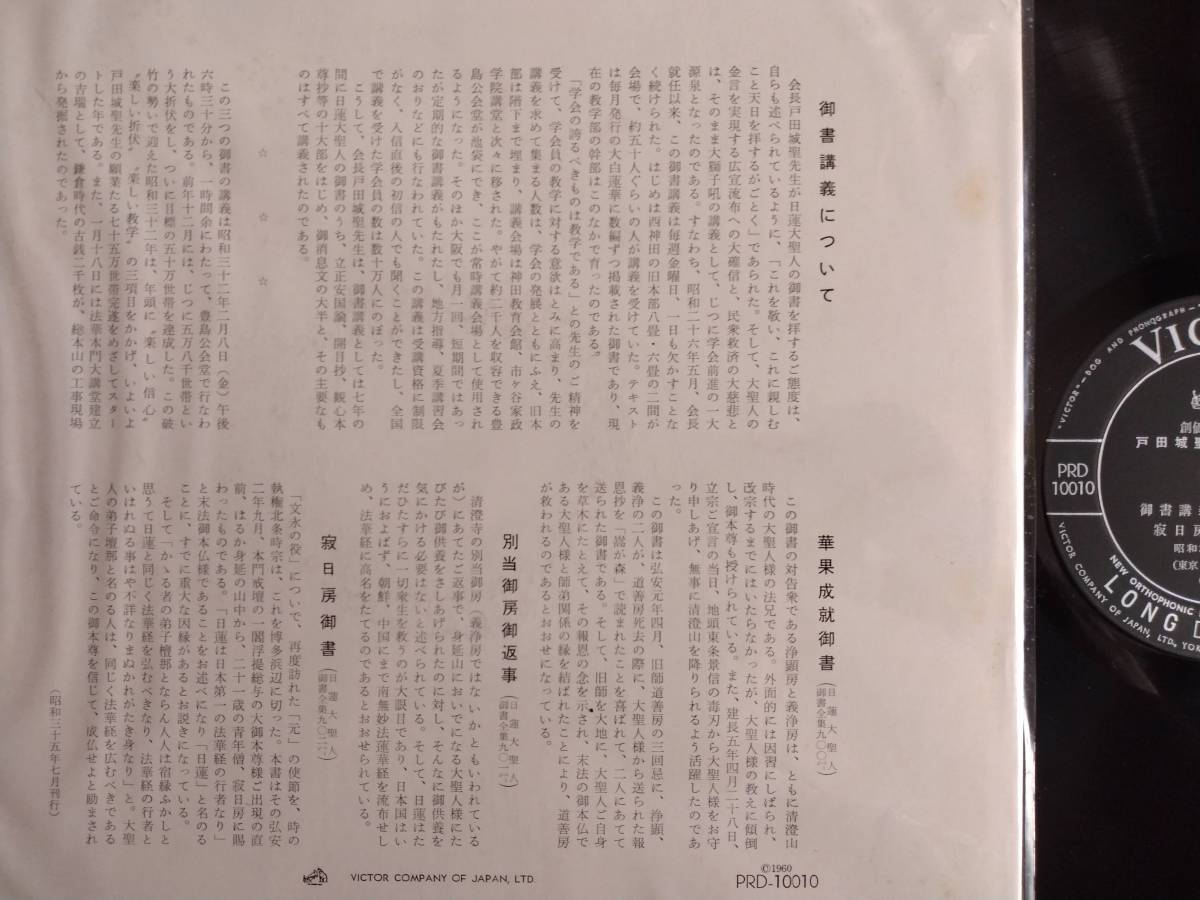 御書講義について
会長戸田城聖先生が日蓮大聖人の御書を拝するご態度は、
自らも述べられているように、「これを敬い、これに親しむ
こと天日を拝するがごとく」であられた。そして、大聖人の
金言を実現する広宣流布への大確信と、民衆救済の大慈悲と
は、そのまま大獅子吼の講義として、じつに学会前進の一大
源泉となったのである。すなわち、昭和二十六年五月、会長
就任以来、この御書講義は毎週金曜日、一日も欠かすことな
く続けられた。はじめは西神田の旧本部八畳・六畳の二間が
会場で、約五十人ぐらいの人が講義を受けていた。テキスト
は毎月発行の大白蓮華に数編ずつ掲載された御書であり、現
在の教学部の幹部はこのなかで育ったのである。
「学会の誇るべきものは教学である」との先生のご精神を
受けて、学会員の教学に対する意欲はとみに高まり、先生の
講義を求めて集まる人数は、学会の発展とともにふえ、旧本
部は階下まで埋まり、講義会場は神田教育会館、市ヶ谷家政
学院講堂と次々に移された。やがて約二千人を収容できる豊
島公会堂が池袋にでき、ここが常時講義会場として使用され
るようになった。そのほか大阪でも月一回、短期間ではあっ
たが定期的な御書講義がもたれたし、地方指導、夏季講習会
のおりなどにも行なわれていた。この講義は受講資格に制限
がなく、入信直後の初信の人でも聞くことができたし、全国
で講義を受けた学会員の数は数十万人にのぼった。
こうして、会長戸田城聖先生は、御書講義としては七年の
間に日蓮大聖人の御書のうち、立正安国論、開目抄、観心本
尊抄等の十大部をはじめ、御消息文の大半と、その主要なも
のはすべて講義されたのである。
☆ ☆ ☆
この三つの御書の講義は昭和三十二年二月八日(金)午後
六時三十分から、一時間余にわたって、豊島公会堂で行なわ
れたものである。前年十二月には、じつに五万八千世帯とい
う大折伏をし、ついに目標の五十万世帯を達成した。この破
竹の勢いで迎えた昭和三十二年は、年頭に〝楽しい信心〟
〝楽しい折伏〟〝楽しい教学〟の三項目をかかげ、いよいよ
戸田城聖先生の願業たる七十五万世帯完遂をめざしてスター
トした年である。また、一月十八日には法華本門大講堂建立
の吉瑞として、鎌倉時代の古銭二千枚が、総本山の工事現場
から発掘されたのであった。
華果成就御書(日蓮大聖人御書全集九〇〇㌻)
この御書の対告衆である浄顕房と義浄房は、ともに清澄山
時代の大聖人様の法兄である。外面的には因習にしばられ、
改宗するまでにはいたらなかったが、大聖人様の教えに傾倒
し、御本尊も授けられている。また、建長五年四月二十八日、
立宗ご宣言の当日、地頭東条景信の毒刃から大聖人様をお守
り申しあげ、無事に清澄山を降りられるよう活躍したのであ
った。
この御書は弘安元年四月、旧師道善房の三回忌に、浄顕、
義浄の二人が、道善房死去の際に、大聖人様から送られた報
恩抄を「嵩が森」で読まれたことを喜ばれて、二人にあてて
送られた御書である。そして、旧師を大地に、大聖人ご自身
を草木にたとえて、その報恩の念を示され、末法の御本仏で
ある大聖人様と師弟関係の縁を結ばれたことにより、道善房
が救われるのであるとおおせになっている。
別当御房御返事(日蓮大聖人御書全集九〇一㌻)
清澄寺の別当御房(義浄房ではないか、ともいわれている
が)にあてたご返事で、身延山においでになる大聖人様にた
びたび御供養をさしあげられたのに対し、そんなに御供養を
気にかける必要はないと述べられている。そして、日蓮はた
だひたすらに一切衆生を救うのが大眼目であり、日本国はい
うにおよばず、朝鮮、中国にまで南無妙法蓮華経を流布せし
め、法華経に高名をたてるのであるとおおせられている。
寂日房御書(日蓮大聖人御書全集九〇二㌻)
「文永の役」についで、再度訪れた「元」の使節を、時の
執権北条時宗は、これを博多浜辺に切った。本書はその弘安
二年九月、本門戒壇の一閻浮提総与の大御本尊様ご出現の直
前、はるか身延の山中から、二十一歳の青年僧、寂日房に賜
わったものである。「日蓮は日本第一の法華経の行者なり」
と末法御本仏様であることをお述べになり「日蓮」と名のる
ことに、すでに重大な因縁があるとお説きになっている。
そして「かゝる者の弟子檀那とならん人人は宿縁ふかしと
思うて日蓮と同じく法華経を弘むべきなり、法華経の行者と
いはれぬる事はや不祥なりまぬかれがたき身なり」と。大聖
人の弟子壇那と名のる人は、同じく法華経を広むべきである
とご命令になり、この御本尊を信じて、成仏せよと励まされ
ている。
(昭和三十五年七月刊行)
VICTOR COMPANY OF JAPAN, LTD.
©1960
PRD-10010
"VICTOR"-DOG AND PHONOGRAPH-
VIC
創価
戸田城聖
PRD
10010
御書講義
寂日房
昭和
(東京
NEW ORTHOPHONIC
LONG
VICTOR COMPANY OF JAPAN, LTD., YOK